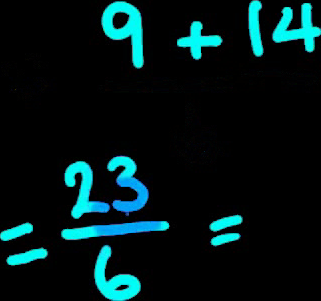 9 + 14
= 23/6 =